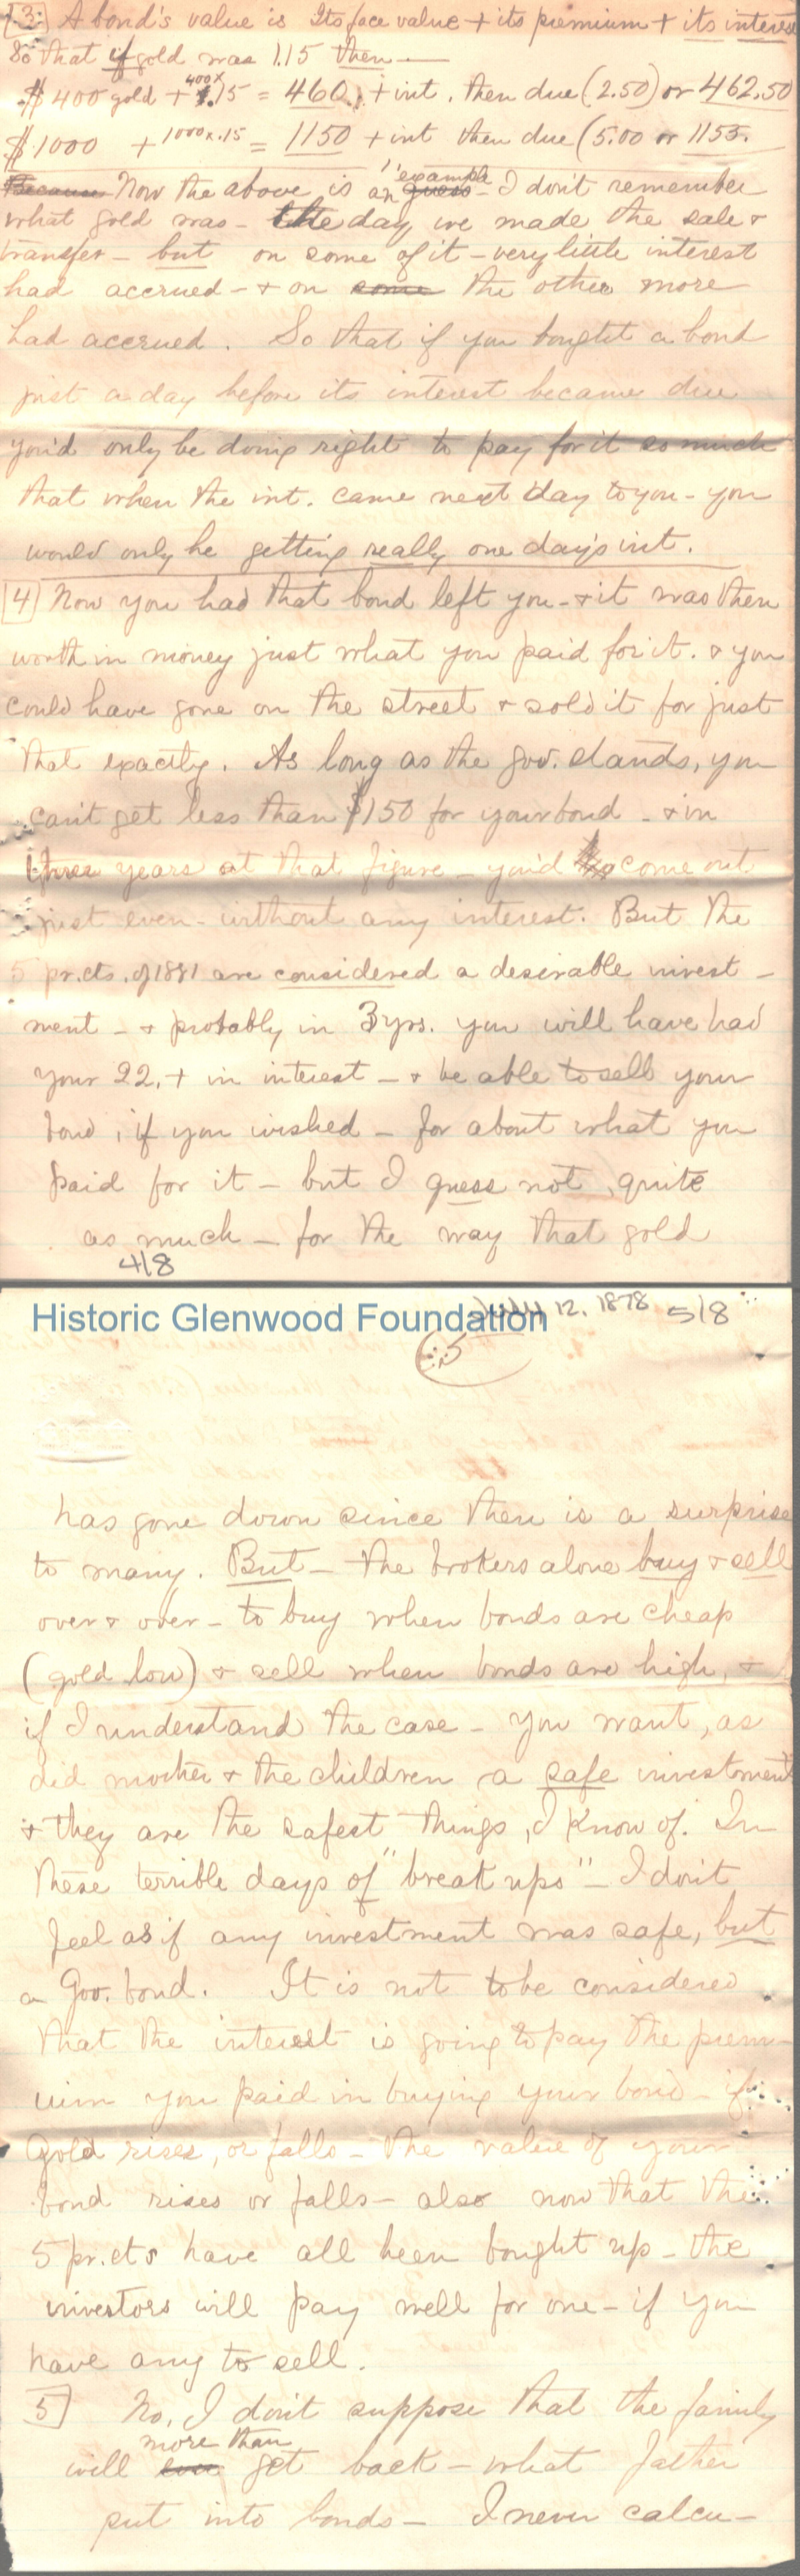 [3] A bond's value is its face value + its premium + its interest
So that if gold was 1.15 then —
400 x
$400 gold + .15 = 460, + int. then due (2.50) or 462.50
$1000 + 1000 x .15 = 1150 + int then due (5.00 or 1155.
"example
Because Now the above is an guess - I don't remember
what gold was - the day we made the sale +
transfer - but on some of it - very little interest
had accrued - + on some the other more
had accrued. So that if you bought a bond
just a day before its interest became due
you'd only be doing right to pay for it so much
that when the int. came next day to you - you
would only be getting really one day's int.
[4] Now you had that bond left you - + it was then
worth in money just what you paid for it. + you
could have gone on the street + sold it for just
that exactly. As long as the gov. stands, you
can't get less than $150 for your bond - + in
three years at that figure - you'd come out
just even - without any interest. But the
5 pr.cts. of 1881 are considered a desirable invest -
ment - + probably in 3 yrs. you will have had
your 22. + in interest - + be able to sell your
bond, if you wished - for about what you
paid for it - but I guess not quite
as much - for the way that gold
4/8
Historic Glenwood Foundation
July 12. 1878 5/8
5
has gone down since then is a surprise
to many. But - the brokers alone buy + sell
over + over - to buy when bonds are cheap
(gold low) + sell when bonds are high, +
if I understand the case - you want, as
did mother + the children a safe investment
+ they are the safest things, I know of. In
these terrible days of "break ups" - I don't
feel as if any investment was safe, but
a Gov. bond. It is not to be considered
that the interest is going to pay the prem-
ium you paid in buying your bond - if
Gold rises, or falls - the value of your
bond rises or falls - also now that the
5 pr.cts have all been bought up - the
investors will pay well for one - if you
have any to sell.
5] No, I don't suppose that the family
more than
will get back - what father
put into bonds - I never calcu -